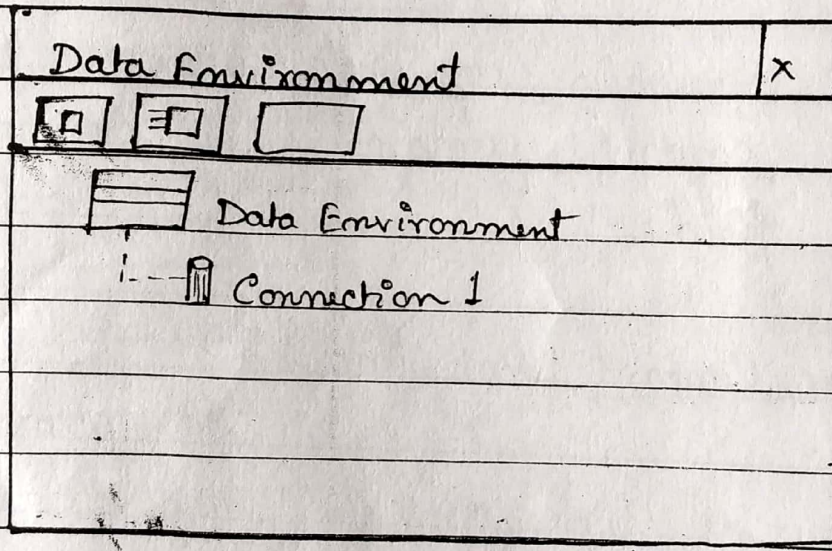 Data Environment
x
Data Environment
Connection 1